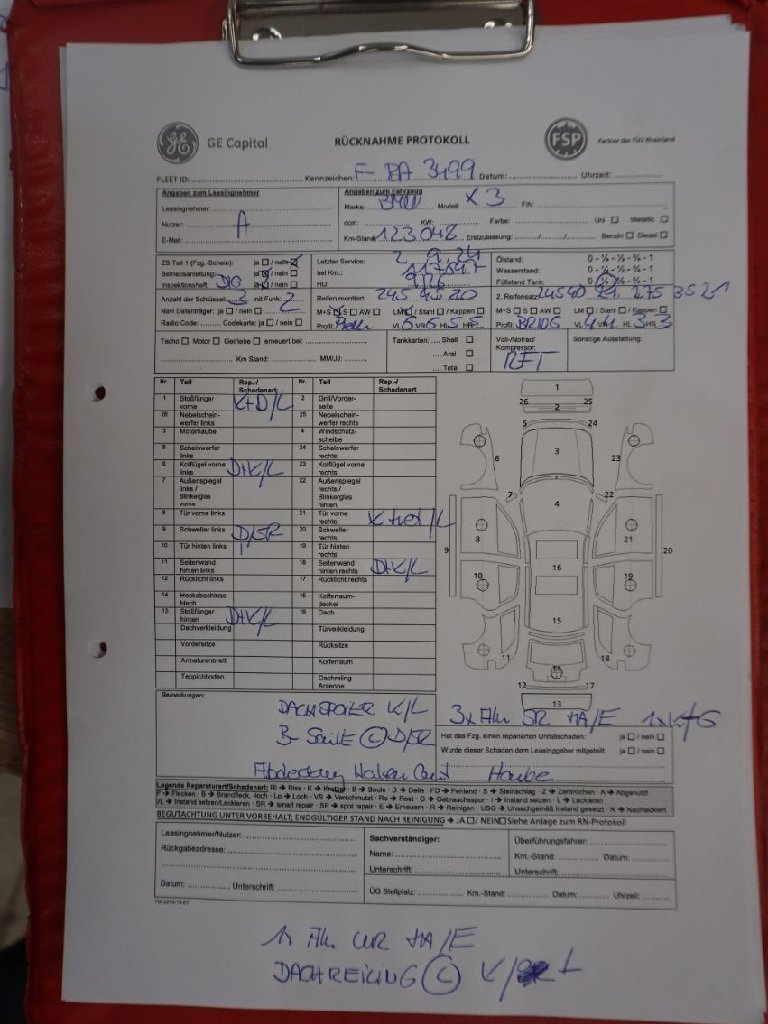 GE Capital RÜCKNAHME PROTOKOLL FSP Partner des TÜV Rheinland
FLEET ID: Kennzeichen: F- DA 3499 Datum: Uhrzeit:
Angaben zum Leasingnehmer Angaben zum Fahrzeug
Leasingnehmer: Marke: BMW Modell: X3 FIN:
Nutzer: A ccm: KW: Farbe: Uni Metallic
E-Mail: Km-Stand: 123.048 Erstzulassung: Benzin Diesel
ZB Teil 1 (Fzg.-Schein): ja / nein Letzter Service: Ölstand: 0 - ¼ - ½ - ¾ - 1
Betriebsanleitung: ja / nein bei Km.: Wasserstand: 0 - ¼ - ½ - ¾ - 1
Inspektionsheft DIG ja / nein HU: 9/26 Füllstand Tank: 0 - ¼ - ½ - ¾ - 1
Anzahl der Schlüssel: 3 mit Funk: 2 Reifen montiert 245 45 20 2. Reifensatz 245 40 21, 275 35 21
Navi Datenträger: ja / nein M+S S AW LM / Stahl / Kappen M-S S AW LM / Stahl / Kappen
Radio Code: Codekarte: ja / nein Profil: VL 5 VR 5 HL 5 HR Profil: BRIDG VL 4 VR 4 HL 3 HR 3
Tacho Motor Getriebe erneuert bei: Tankkarten: Shell Voll-/Notrad/ Sonstige Ausstattung:
Kompressor:
Km Stand: MM/JJ: Aral RFT
Total
Nr. Teil Rep./Schadenart Nr. Teil Rep./Schadenart
1 Stoßfänger vorne K+D/L 2 Grill/Vorderseite
26 Nebelscheinwerfer links 25 Nebelscheinwerfer rechts
3 Motorhaube 4 Windschutzscheibe
5 Scheinwerfer links 24 Scheinwerfer rechts
6 Kotflügel vorne links D+K/L 23 Kotflügel vorne rechts
7 Außenspiegel links / Blinkerglas 22 Außenspiegel rechts / Blinkerglas
8 Tür vorne links 21 Tür vorne rechts
9 Schweller links D/SR 20 Schweller rechts
10 Tür hinten links 19 Tür hinten rechts
11 Seitenwand hinten links 18 Seitenwand hinten rechts D+K/L
12 Rücklicht links 17 Rücklicht rechts
14 Heckabschlussblech 15 Kofferraumdeckel
13 Stoßfänger hinten D+K/L 16 Dach
Dachverkleidung Türverkleidung
Vordersitze Rücksitze
Armaturenbrett Kofferraum
Teppichboden Dachreling Antenne
1
26 25
2
5 24
6 3 23
7 22
4
8 21
9 20
16
10 19
15
11 18
14
12 17
13
Bemerkungen:
DACHSPOILER K/L 3x Alu SR HA/E
B-Säule (L) D/SR Hat das Fzg. einen reparierten Unfallschaden: ja / nein
Wurde dieser Schaden dem Leasinggeber mitgeteilt: ja / nein
Haube
Legende Reparaturart/Schadenart: Ri → Riss · K → Kratzer · B → Beule · D → Delle · FD → Fehlend · S → Steinschlag · Z → Zerbrochen · A → Abgenutzt
F → Flecken · B → Brandfleck, -loch · Lo → Loch · VS → Verschmutzt · Ro → Rost · G → Gebrauchsspur · I → Instand setzen · L → Lackieren
VL → Instand setzen/Lackieren · SR → smart repair · SP → spot repair · E → Erneuern · R → Reinigen · USG → Unsachgemäß instand gesetzt · N → Nachlackiert
BEGUTACHTUNG UNTER VORBEHALT; ENDGÜLTIGER STAND NACH REINIGUNG → JA / NEIN Siehe Anlage zum RN-Protokoll
Leasingnehmer/Nutzer: Sachverständiger: Überführungsfahrer:
Rückgabeadresse: Name: Km.-Stand: Datum:
Unterschrift Unterschrift:
Datum: Unterschrift: ÜG Stellplatz: Km.-Stand: Datum: Uhrzeit:
HA/E
DACHRELING (L) K/ L